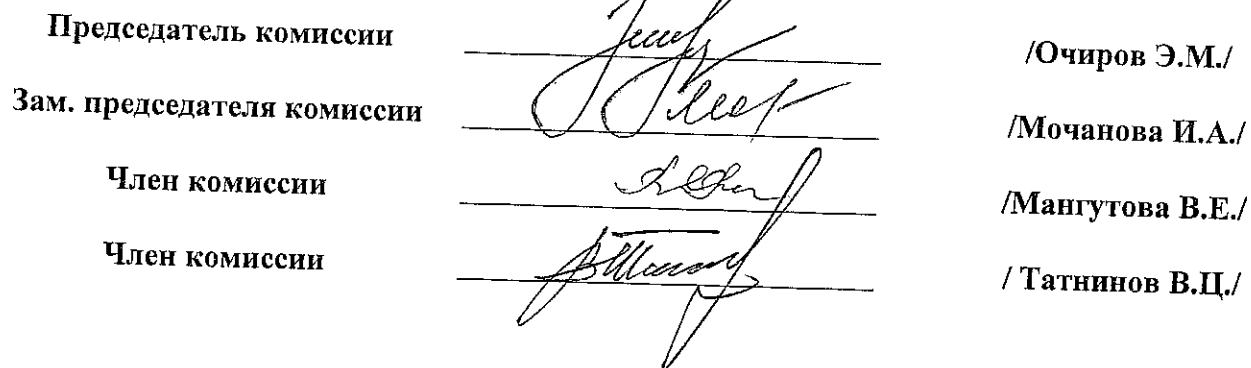 Председатель комиссии /Очиров Э.М./
Зам. председателя комиссии /Мочанова И.А./
Член комиссии /Мангутова В.Е./
Член комиссии / Татнинов В.Ц./